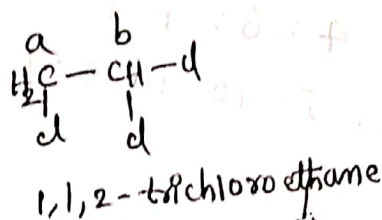 a b
H₂C — CH — Cl
Cl Cl
1,1,2-trichloroethane